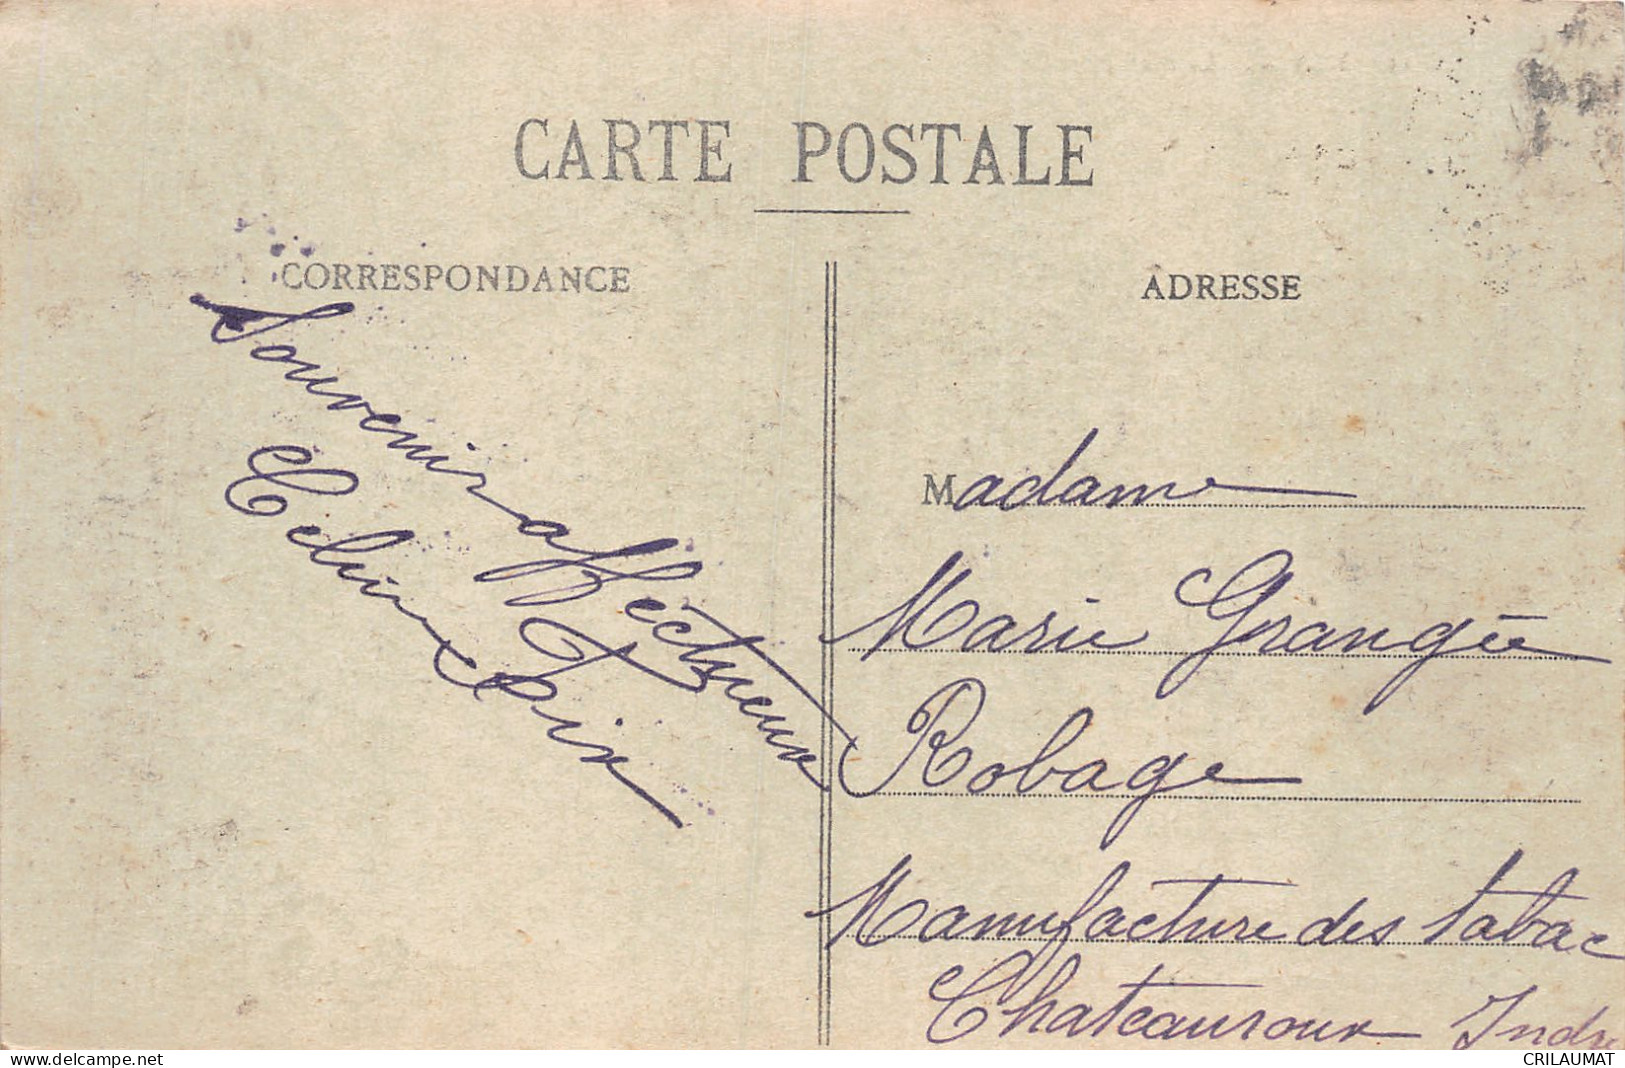 CARTE POSTALE
CORRESPONDANCE
ADRESSE
Souvenir affectueux
Madame
Marie Grangée
Robage
Manufacture des tabac
Chateauroux Indre
www.delcampe.net
CRILAUMAT